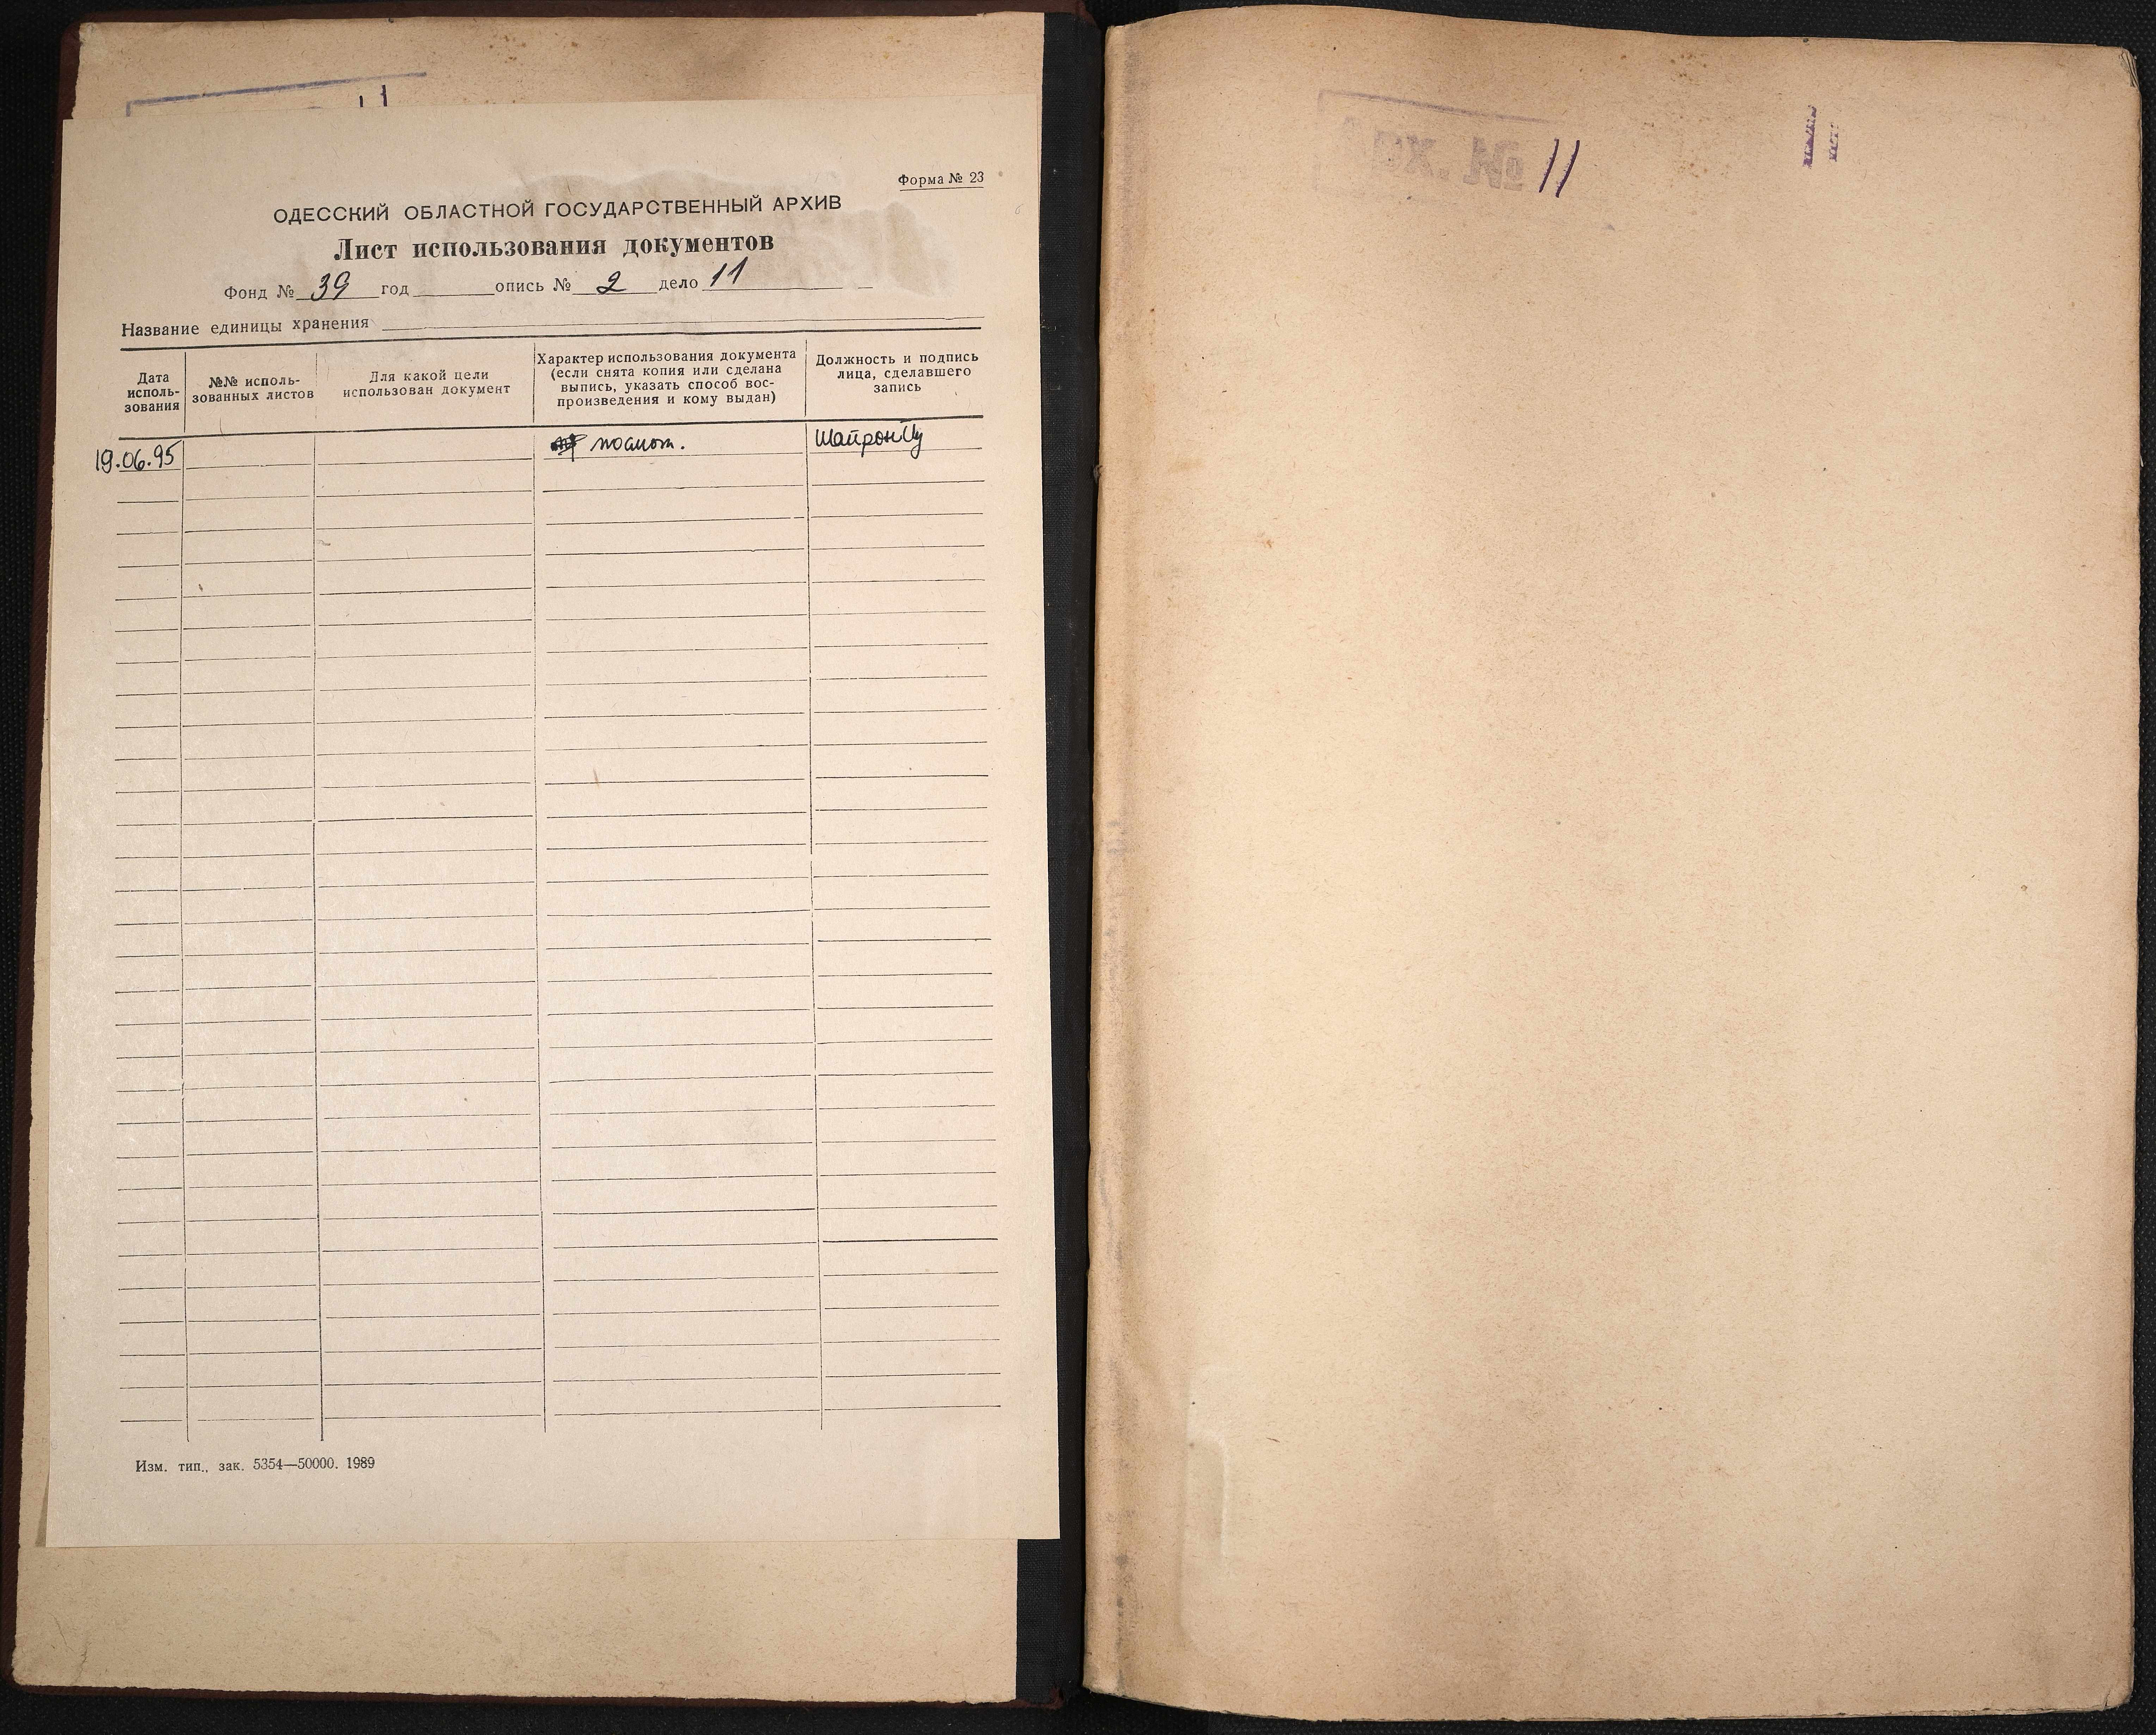 Форма № 23
ОДЕССКИЙ ОБЛАСТНОЙ ГОСУДАРСТВЕННЫЙ АРХИВ
Лист использования документов
Фонд № 39 год опись № 2 дело 11
Название единицы хранения
Дата исполь-
зования
№№ исполь-
зованных листов
Для какой цели
использован документ
Характер использования документа
(если снята копия или сделана
выпись, указать способ вос-
произведения и кому выдан)
Должность и подпись
лица, сделавшего
запись
19.06.95
посмот.
Изм. тип., зак. 5354—50000. 1989
Арх. № 11